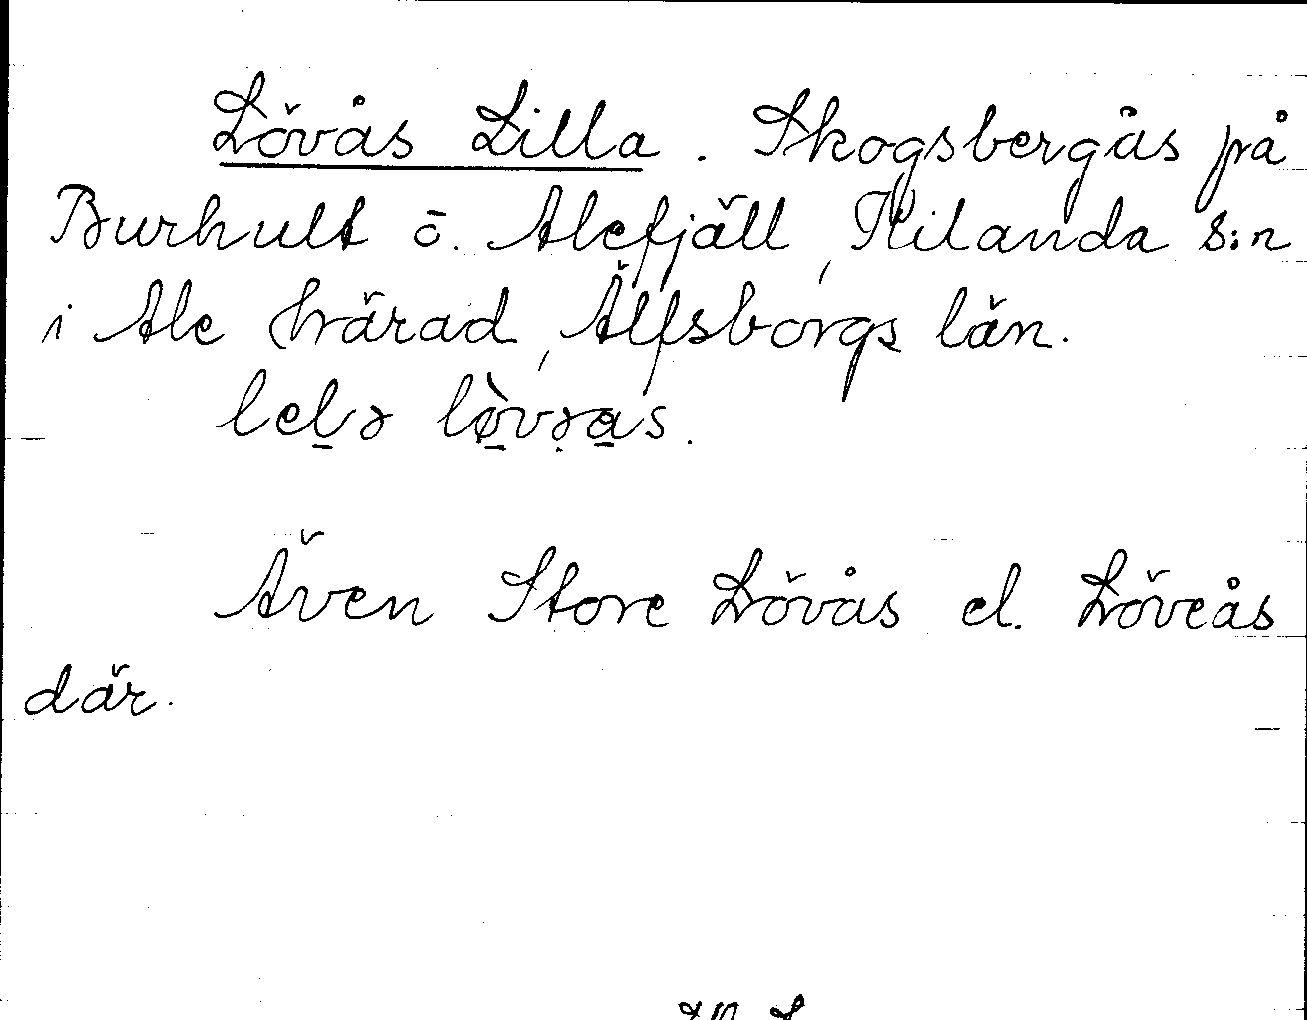 Lövås Lilla. Skogsbergås på
Burhult ö. Alefjäll, Kilanda s:n
i Ale härad, Älfsborgs län.
Även Store Lövås el. Löveås
där.